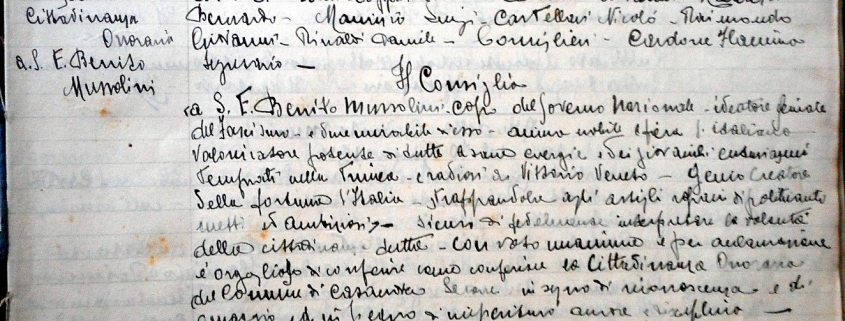 Cittadinanza
Onoraria
a S. E. Benito
Mussolini
Bernardo - Maurizio Luigi - Castellari Nicolò - Raimondo
Giovanni - Rinaldi Daniele - Consiglieri - Cardone Flaminio
Segretario
Il Consiglio
a S. E. Benito Mussolini - Capo del Governo Nazionale - ideatore geniale
del fascismo - anima nobile fiera italiana
valorizzatore potente di tutte sane energie e dei giovanili entusiasmi
temprati nella trincea e radiosi a Vittorio Veneto - Genio Creatore
della fortuna d'Italia - strappandola agli artigli rapaci di politicanti
inetti ed ambiziosi - sicuri di fedelmente interpretare la volontà
della cittadinanza tutta - con voto unanime e per acclamazione
è orgoglioso di conferire come conferisce la Cittadinanza Onoraria
del Comune di Casanova in segno di riconoscenza e di
omaggio ed in pegno di imperituro amore e disciplina -